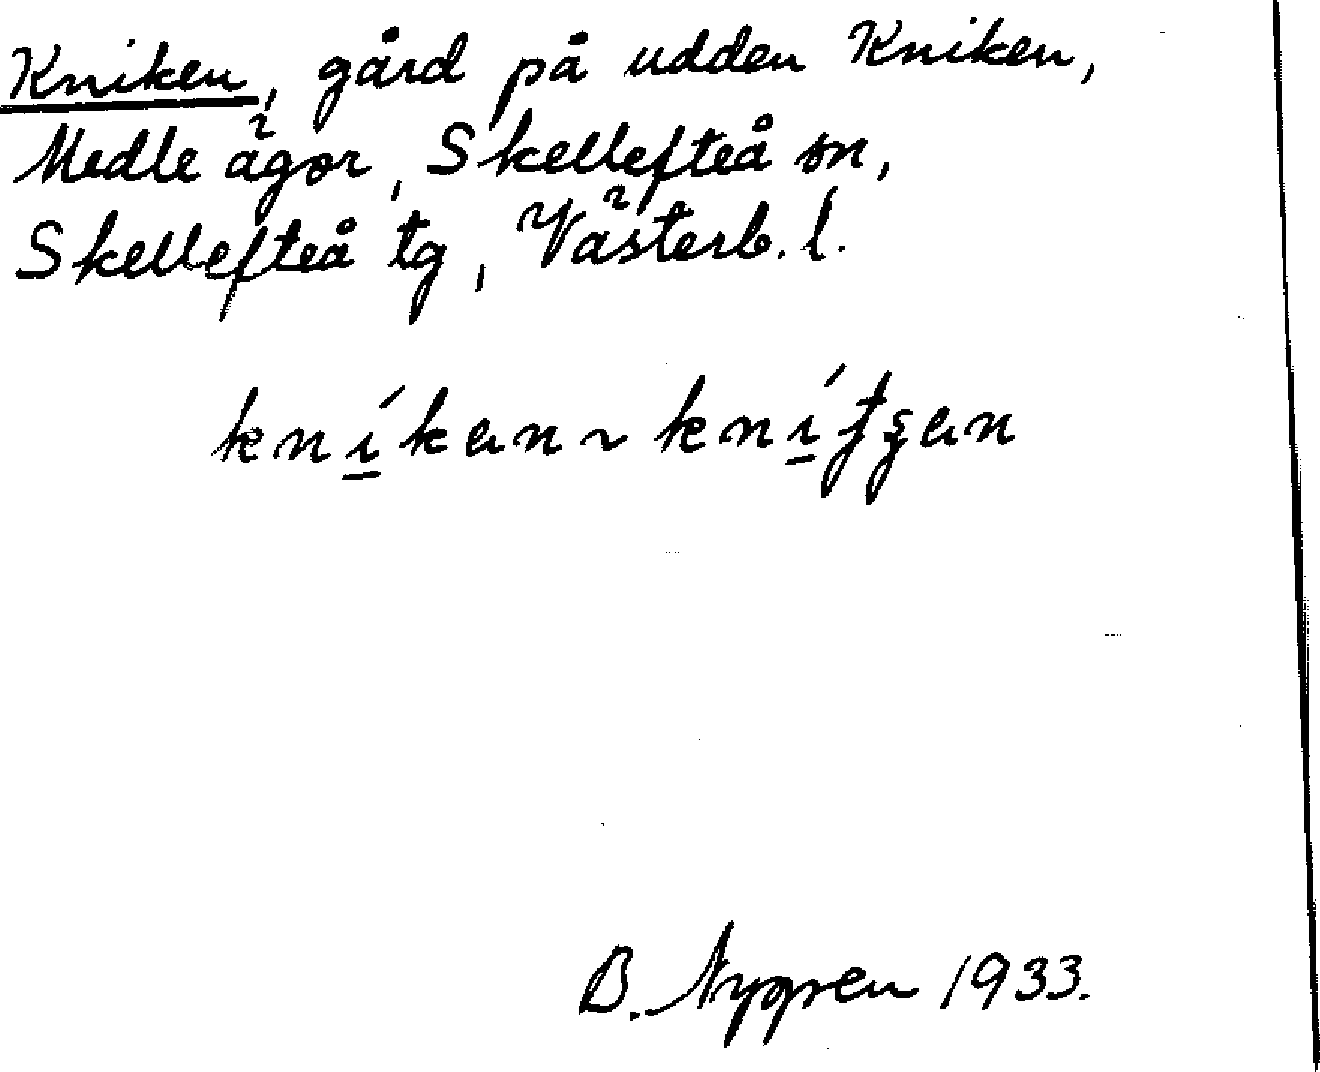 Kniken, gård på udden Kniken,
Medle ägor, Skellefteå sn,
Skellefteå tg, Västerb. l.
kní̲kan ~
B. Nygren 1933.